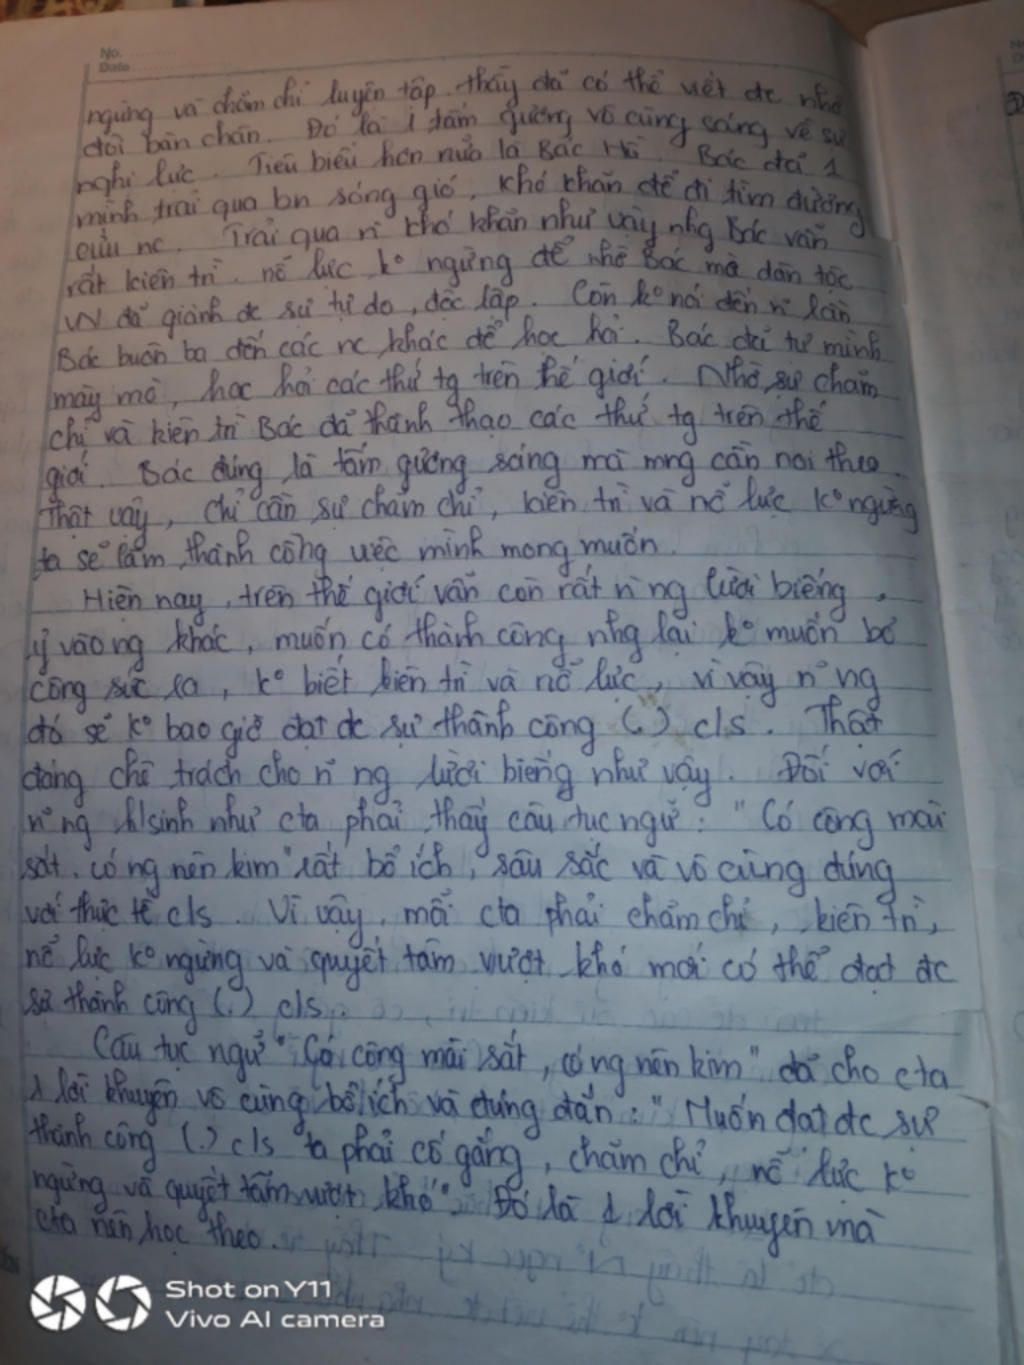 No.
Date
ngừng và chăm chỉ luyện tập, thầy đã có thể viết đc nhờ
đôi bàn chân. Đó là 1 tấm gương vô cùng sáng về sự
nghị lực. Tiêu biểu hơn nữa là Bác Hồ. Bác đã 1
mình trải qua bn sóng gió, khó khăn để đi tìm đường
cứu nc. Trải qua n~ khó khăn như vậy nhg Bác vẫn
rất kiên trì, nỗ lực kº ngừng để nhờ Bác mà dân tộc
VN đã giành đc sự tự do, độc lập. Còn kº nói đến n~ lần
Bác buôn ba đến các nc khác để học hỏi. Bác đã tự mình
mày mò, học hỏi các thứ tg trên thế giới. Nhờ sự chăm
chỉ và kiên trì Bác đã thành thạo các thứ tg trên thế
giới. Bác đúng là tấm gương sáng mà mng cần noi theo.
Thật vậy, chỉ cần sự chăm chỉ, kiên trì và nỗ lực kº ngừng
ta sẽ làm thành công việc mình mong muốn.
Hiện nay, trên thế giới vẫn còn rất n~ ng lười biếng,
ỷ vào ng khác, muốn có thành công nhg lại kº muốn bỏ
công sức ra, kº biết kiên trì và nỗ lực, vì vậy n~ ng
đó sẽ kº bao giờ đạt đc sự thành công (.) c/s. Thật
đáng chê trách cho n~ ng lười biếng như vậy. Đối với
n~ ng h/sinh như cta phải thấy câu tục ngữ: "Có công mài
sắt, có ng nên kim" rất bổ ích, sâu sắc và vô cùng đúng
với thực tế c/s. Vì vậy, mỗi cta phải chăm chỉ, kiên trì,
nỗ lực kº ngừng và quyết tâm vượt khó mới có thể đạt đc
sự thành công (.) c/s.
Câu tục ngữ "Có công mài sắt, có ng nên kim" đã cho cta
1 lời khuyên vô cùng bổ ích và đúng đắn: "Muốn đạt đc sự
thành công (.) c/s ta phải cố gắng, chăm chỉ, nỗ lực kº
ngừng và quyết tâm vượt khó". Đó là 1 lời khuyên mà
cta nên học theo.
Shot on Y11
Vivo AI camera